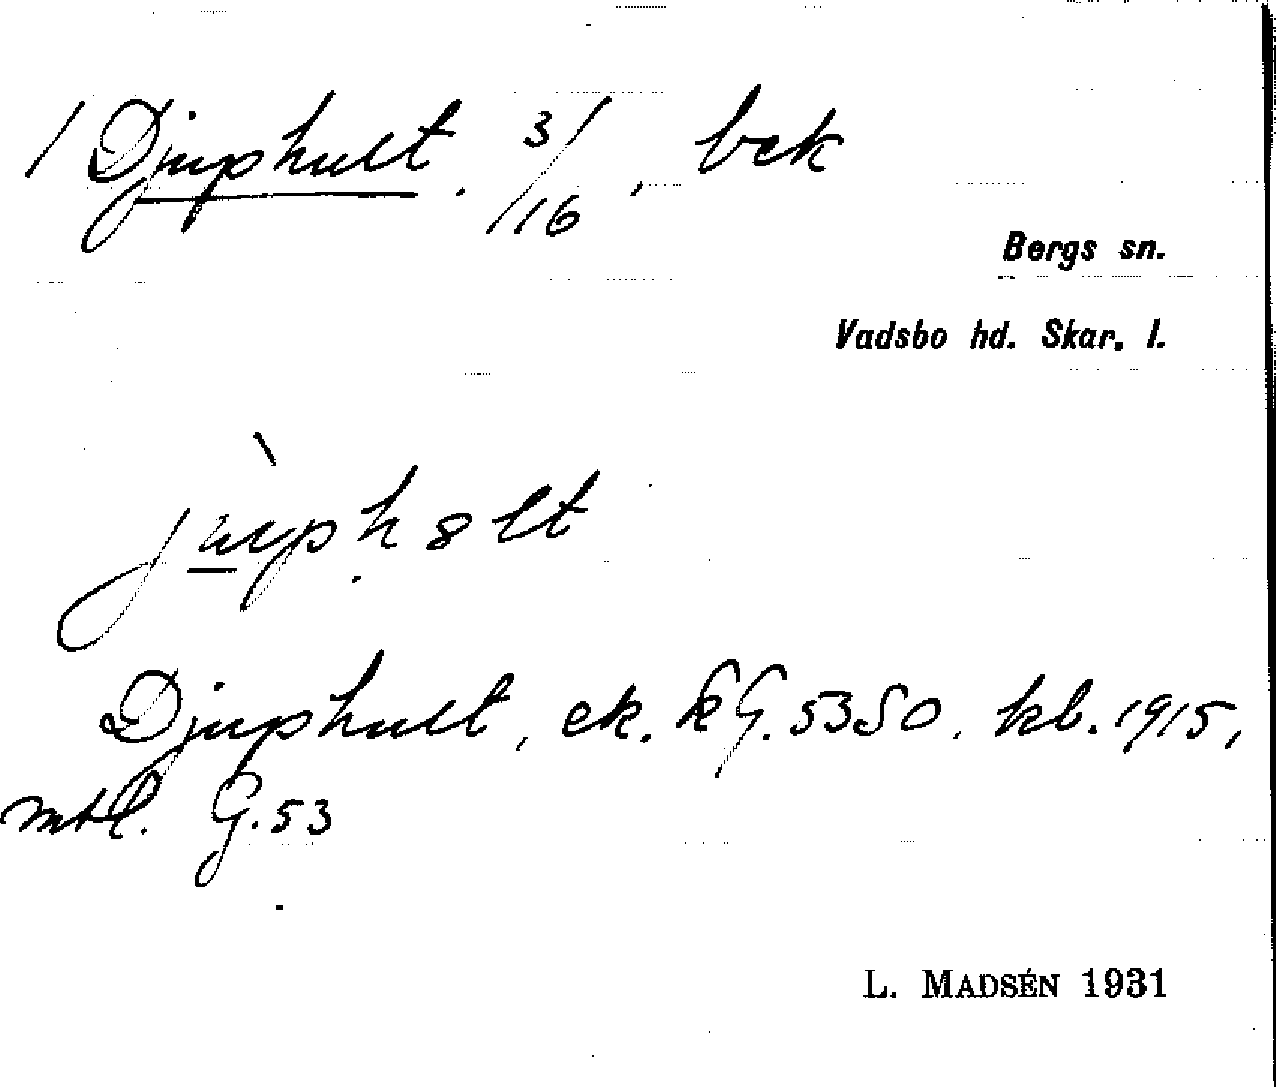 1 Djuphult. 3/16, bek
Bergs sn.
Vadsbo hd. Skar. l.
Djuphult, ek. kG. 53SO. kb. 1915,
mtl. G. 53
L. MADSÉN 1931